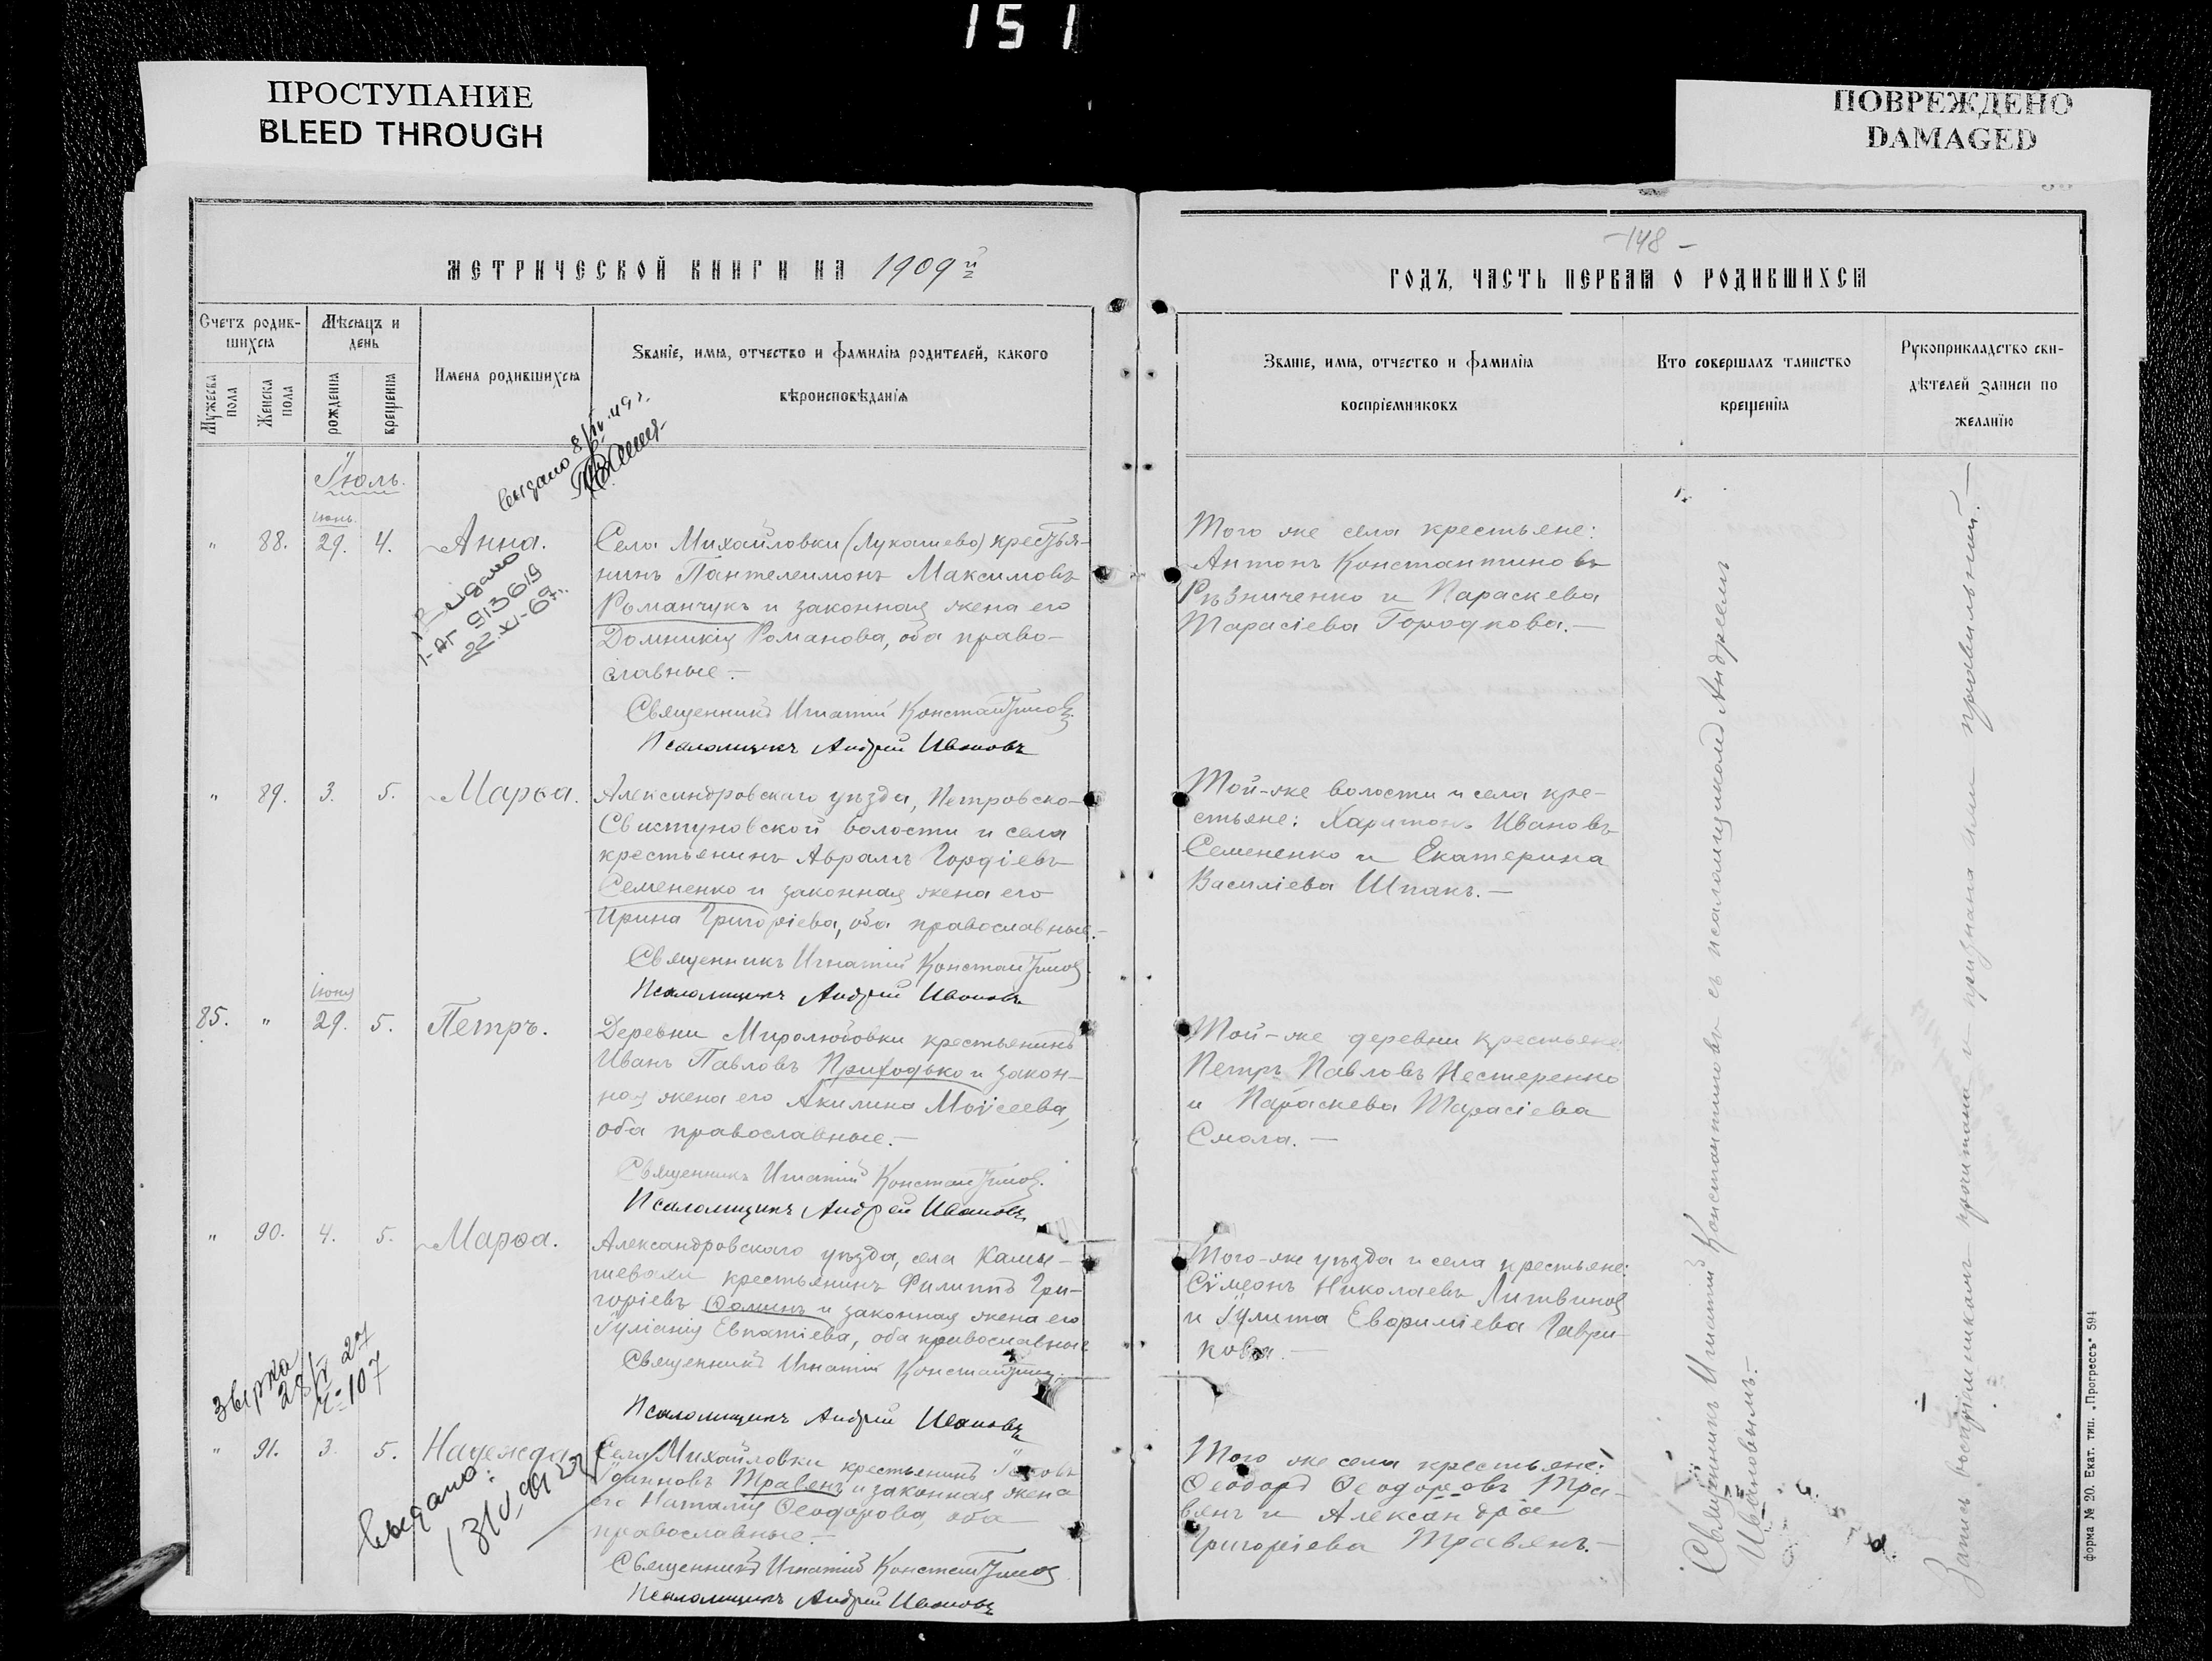 151
ПРОСТУПАНИЕ
BLEED THROUGH
ПОВРЕЖДЕНО
DAMAGED
МЕТРИЧЕСКОЙ КНИГИ НА 1909й
Счетъ родив-
шихся
Мѣсяцъ и
день
Мужеска
пола
Женска
пола
рожденія
крещенія
Имена родившихся
Званіе, имя, отчество и фамилія родителей, какого
вѣроисповѣданія
выдано 8/IV 49 г.
Іюль.
Іюнь.
" 88. 29. 4. Анна.
Села Михайловки (Лукашево) крестья-
нинъ Пантелеимонъ Максимовъ
Романчукъ и законная жена его
Домникія Романова, оба право-
славные.—
Священникъ Игнатій Константиновъ
Псаломщикъ Андрей Ивановъ
913619
22.XI-69г.
" 89. 3. 5. Марѳа.
Александровскаго уѣзда, Петровско-
Свистуновской волости и села
крестьянинъ Аврамъ Гордіевъ
Семененко и законная жена его
Ирина Григоріева, оба православные.—
Священникъ Игнатій Константиновъ
Псаломщикъ Андрей Ивановъ
Іюня
85. " 29. 5. Петръ.
Деревни Миролюбовки крестьянинъ
Иванъ Павловъ Приходько и закон-
ная жена его Акилина Моѵсеева,
оба православные.—
Священникъ Игнатій Константиновъ.
Псаломщикъ Андрей Ивановъ
" 90. 4. 5. Марѳа.
Александровскаго уѣзда, села Камы-
шевахи крестьянинъ Филиппъ Гри-
горіевъ Ѳоминъ и законная жена его
Іуліанія Евпатіева, оба православные
Священникъ Игнатій Константиновъ
Псаломщикъ Андрей Ивановъ
звірка
28/V 27
ч=107
" 91. 3. 5. Надежда
Села Михайловки крестьянинъ Іаковъ
Іоанновъ Травянъ и законная жена
его Наталія Ѳеодорова, оба
православные.—
Священникъ Игнатій Константиновъ
Псаломщикъ Андрей Ивановъ
выдано:
-148-
ГОДЪ, ЧАСТЬ ПЕРВАЯ О РОДИВШИХСЯ
Званіе, имя, отчество и фамилія
воспріемниковъ
Кто совершалъ таинство
крещенія
Рукоприкладство сви-
дѣтелей записи по
желанію
Того же села крестьяне:
Антонъ Константиновъ
Рѣзниченко и Параскева
Тарасіева Городкова.—
Той-же волости и села кре-
стьяне: Харитонъ Ивановъ
Семененко и Екатерина
Василіева Шпакъ.—
Той-же деревни крестьяне
Петръ Павловъ Нестеренко
и Параскева Тарасіева
Смола.—
Того-же уѣзда и села крестьяне:
Сѵмеонъ Николаевъ Литвиновъ
и Іулита Евѳиміева Гаври-
кова.—
Того же села крестьяне:
Ѳеодоръ Ѳеодоровъ Тра-
вянъ и Александра
Григоріева Травянъ.—
Священникъ Игнатій Константиновъ съ псаломщикомъ Андреемъ
Ивановымъ.—
Запись воспріемникамъ прочитана и признана ими правильной.—
форма № 20. Екат. тип. „Прогрессъ" 594